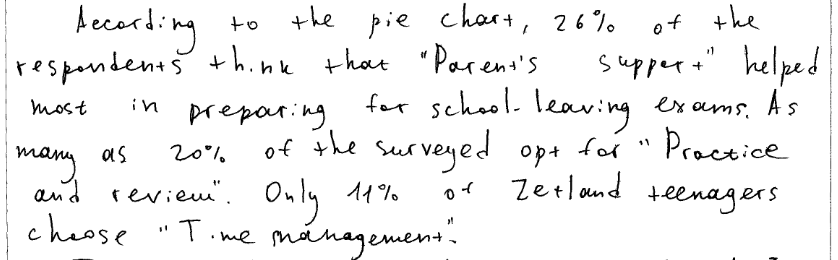 According to the pie chart, 26% of the
respondents think that "Parent's support" helped
most in preparing for school-leaving exams. As
many as 20% of the surveyed opt for "Practice
and review". Only 11% of Zetland teenagers
choose "Time management".